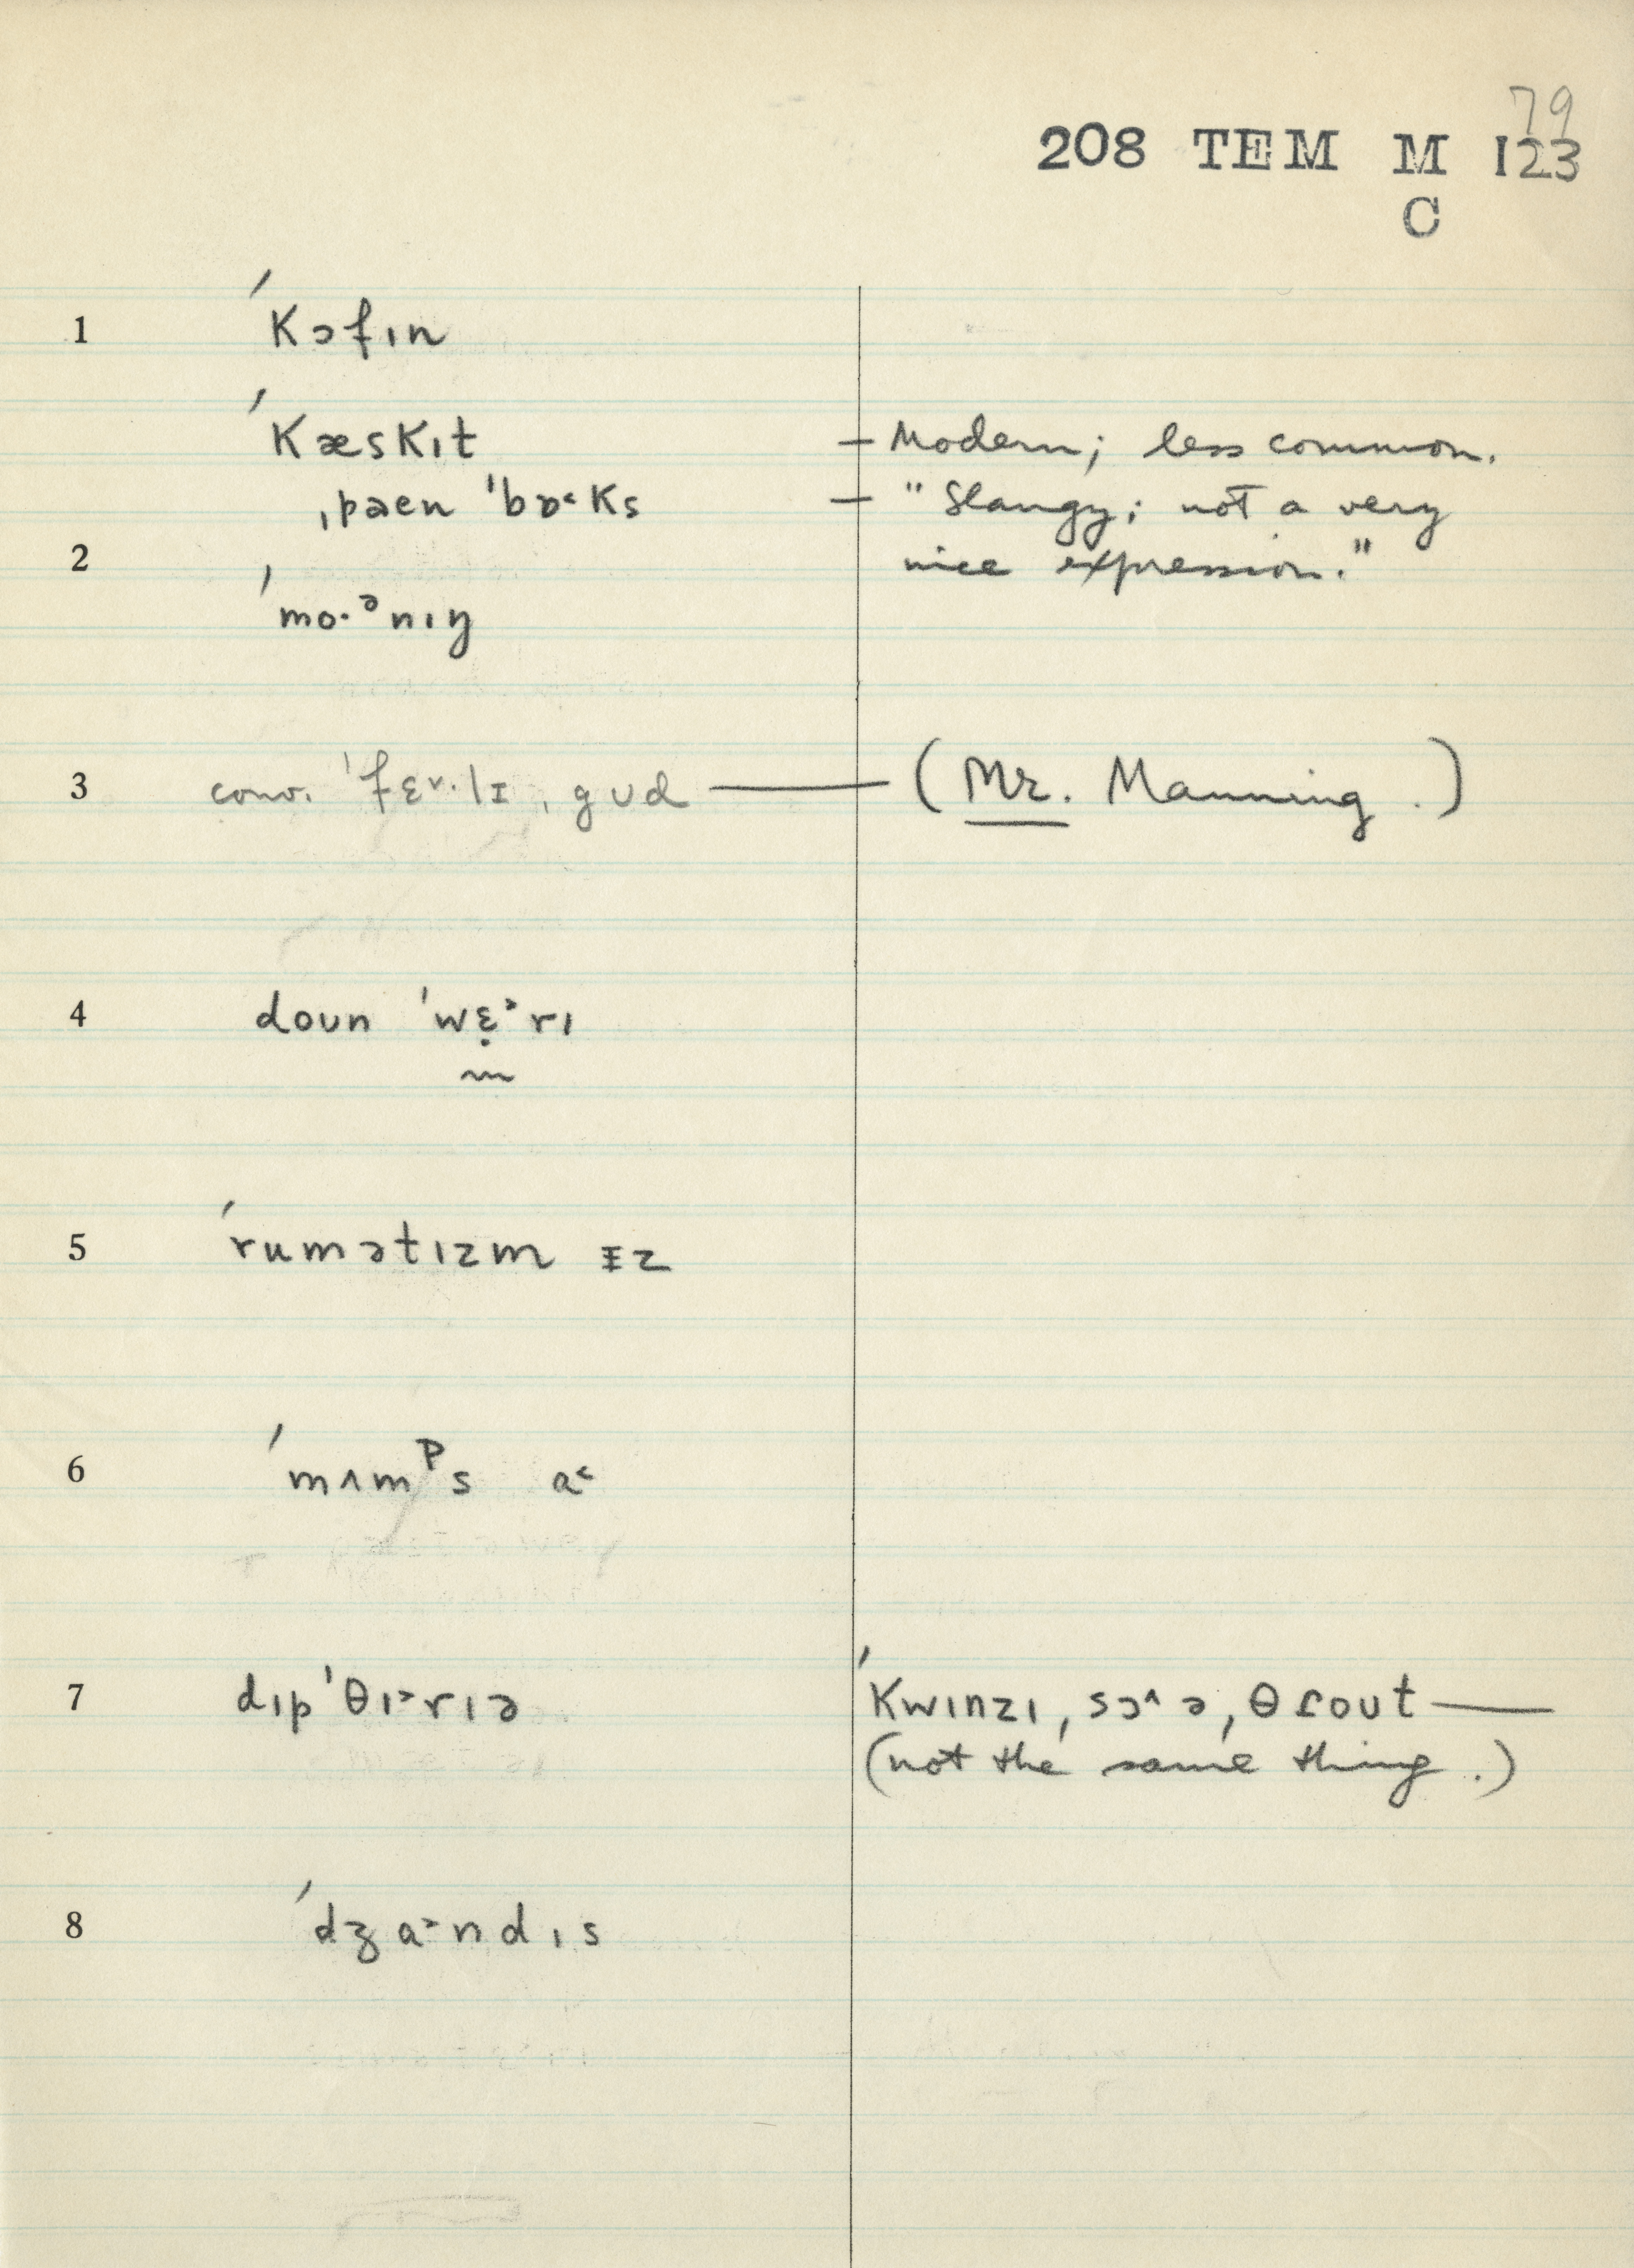 79
208 TEM M 123
C
1 ˈkɔfɪn
ˈkæskɪt — Modern; less common.
ˌpaen ˈbɒ˂ks — "Slangy; not a very
2 nice expression."
ˈmo·ᵊnɪŋ
3 conv. ˈfɛ˅·lɪ ˌgud — (Mr. Manning.)
4 doun ˈwɛ̣ᵊrɪ
5 ˈrumətɪzm ɪz
6 ˈmʌmᵖs a˂
7 dɪpˈθɪ˃rɪə ˈkwɪnzɪ, sɔ˄ə, θɾout —
(not the same thing.)
8 ˈdʒa˃ndɪs